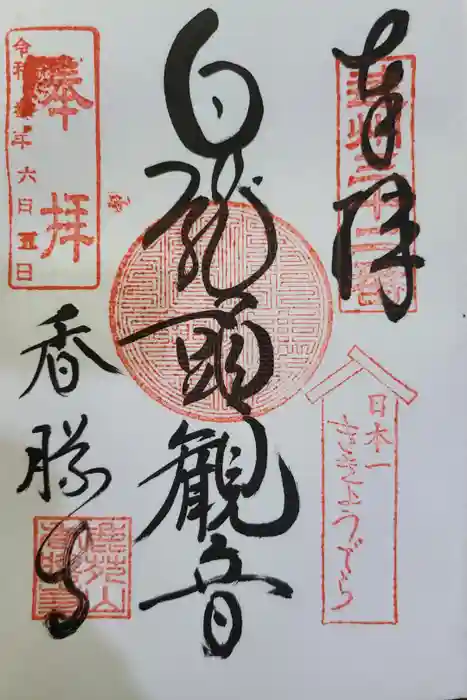 奉拝
遠州三十三番
日本一
ききょうでら
白龍頭観音
奉拝
令和 年六月五日
香勝寺